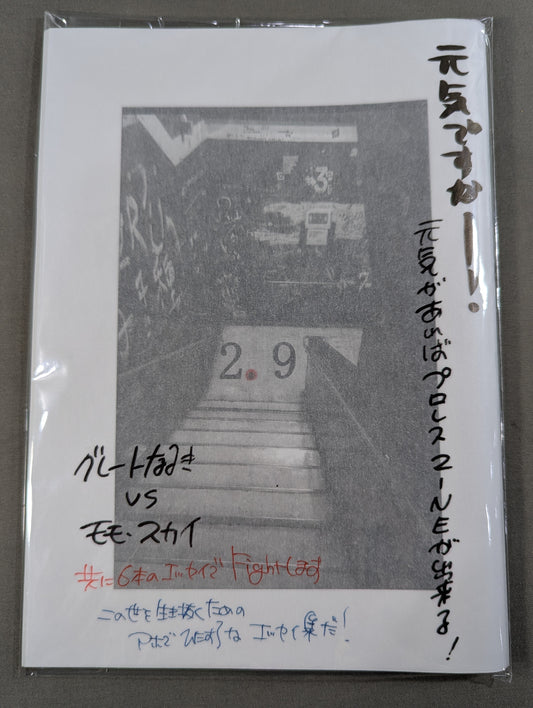 元気ですかーー!
元気があればプロレスZINEが出来る!
2.9
グレートなるき
VS
モモ・スカイ
共に6本のエッセイでFightします
この世を生き抜くための
アホでひたすらな エッセイ集だ!